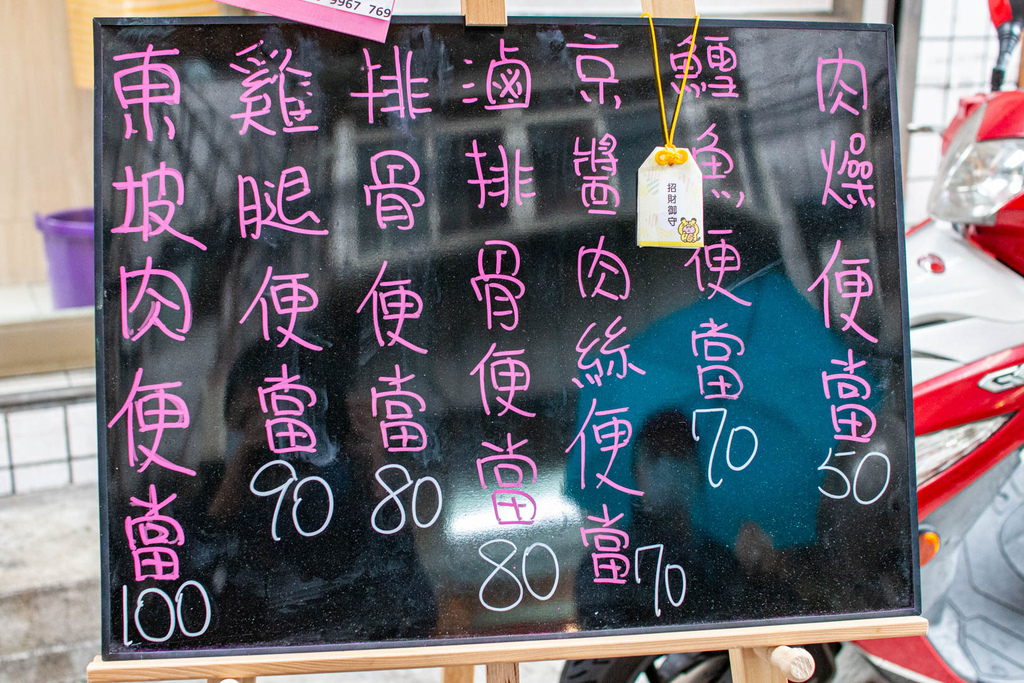 9967 769
東坡肉便當
100
雞腿便當
90
排骨便當
80
滷排骨便當
80
京醬肉絲便當
70
鱈魚便當
70
肉燥便當
50
招財御守